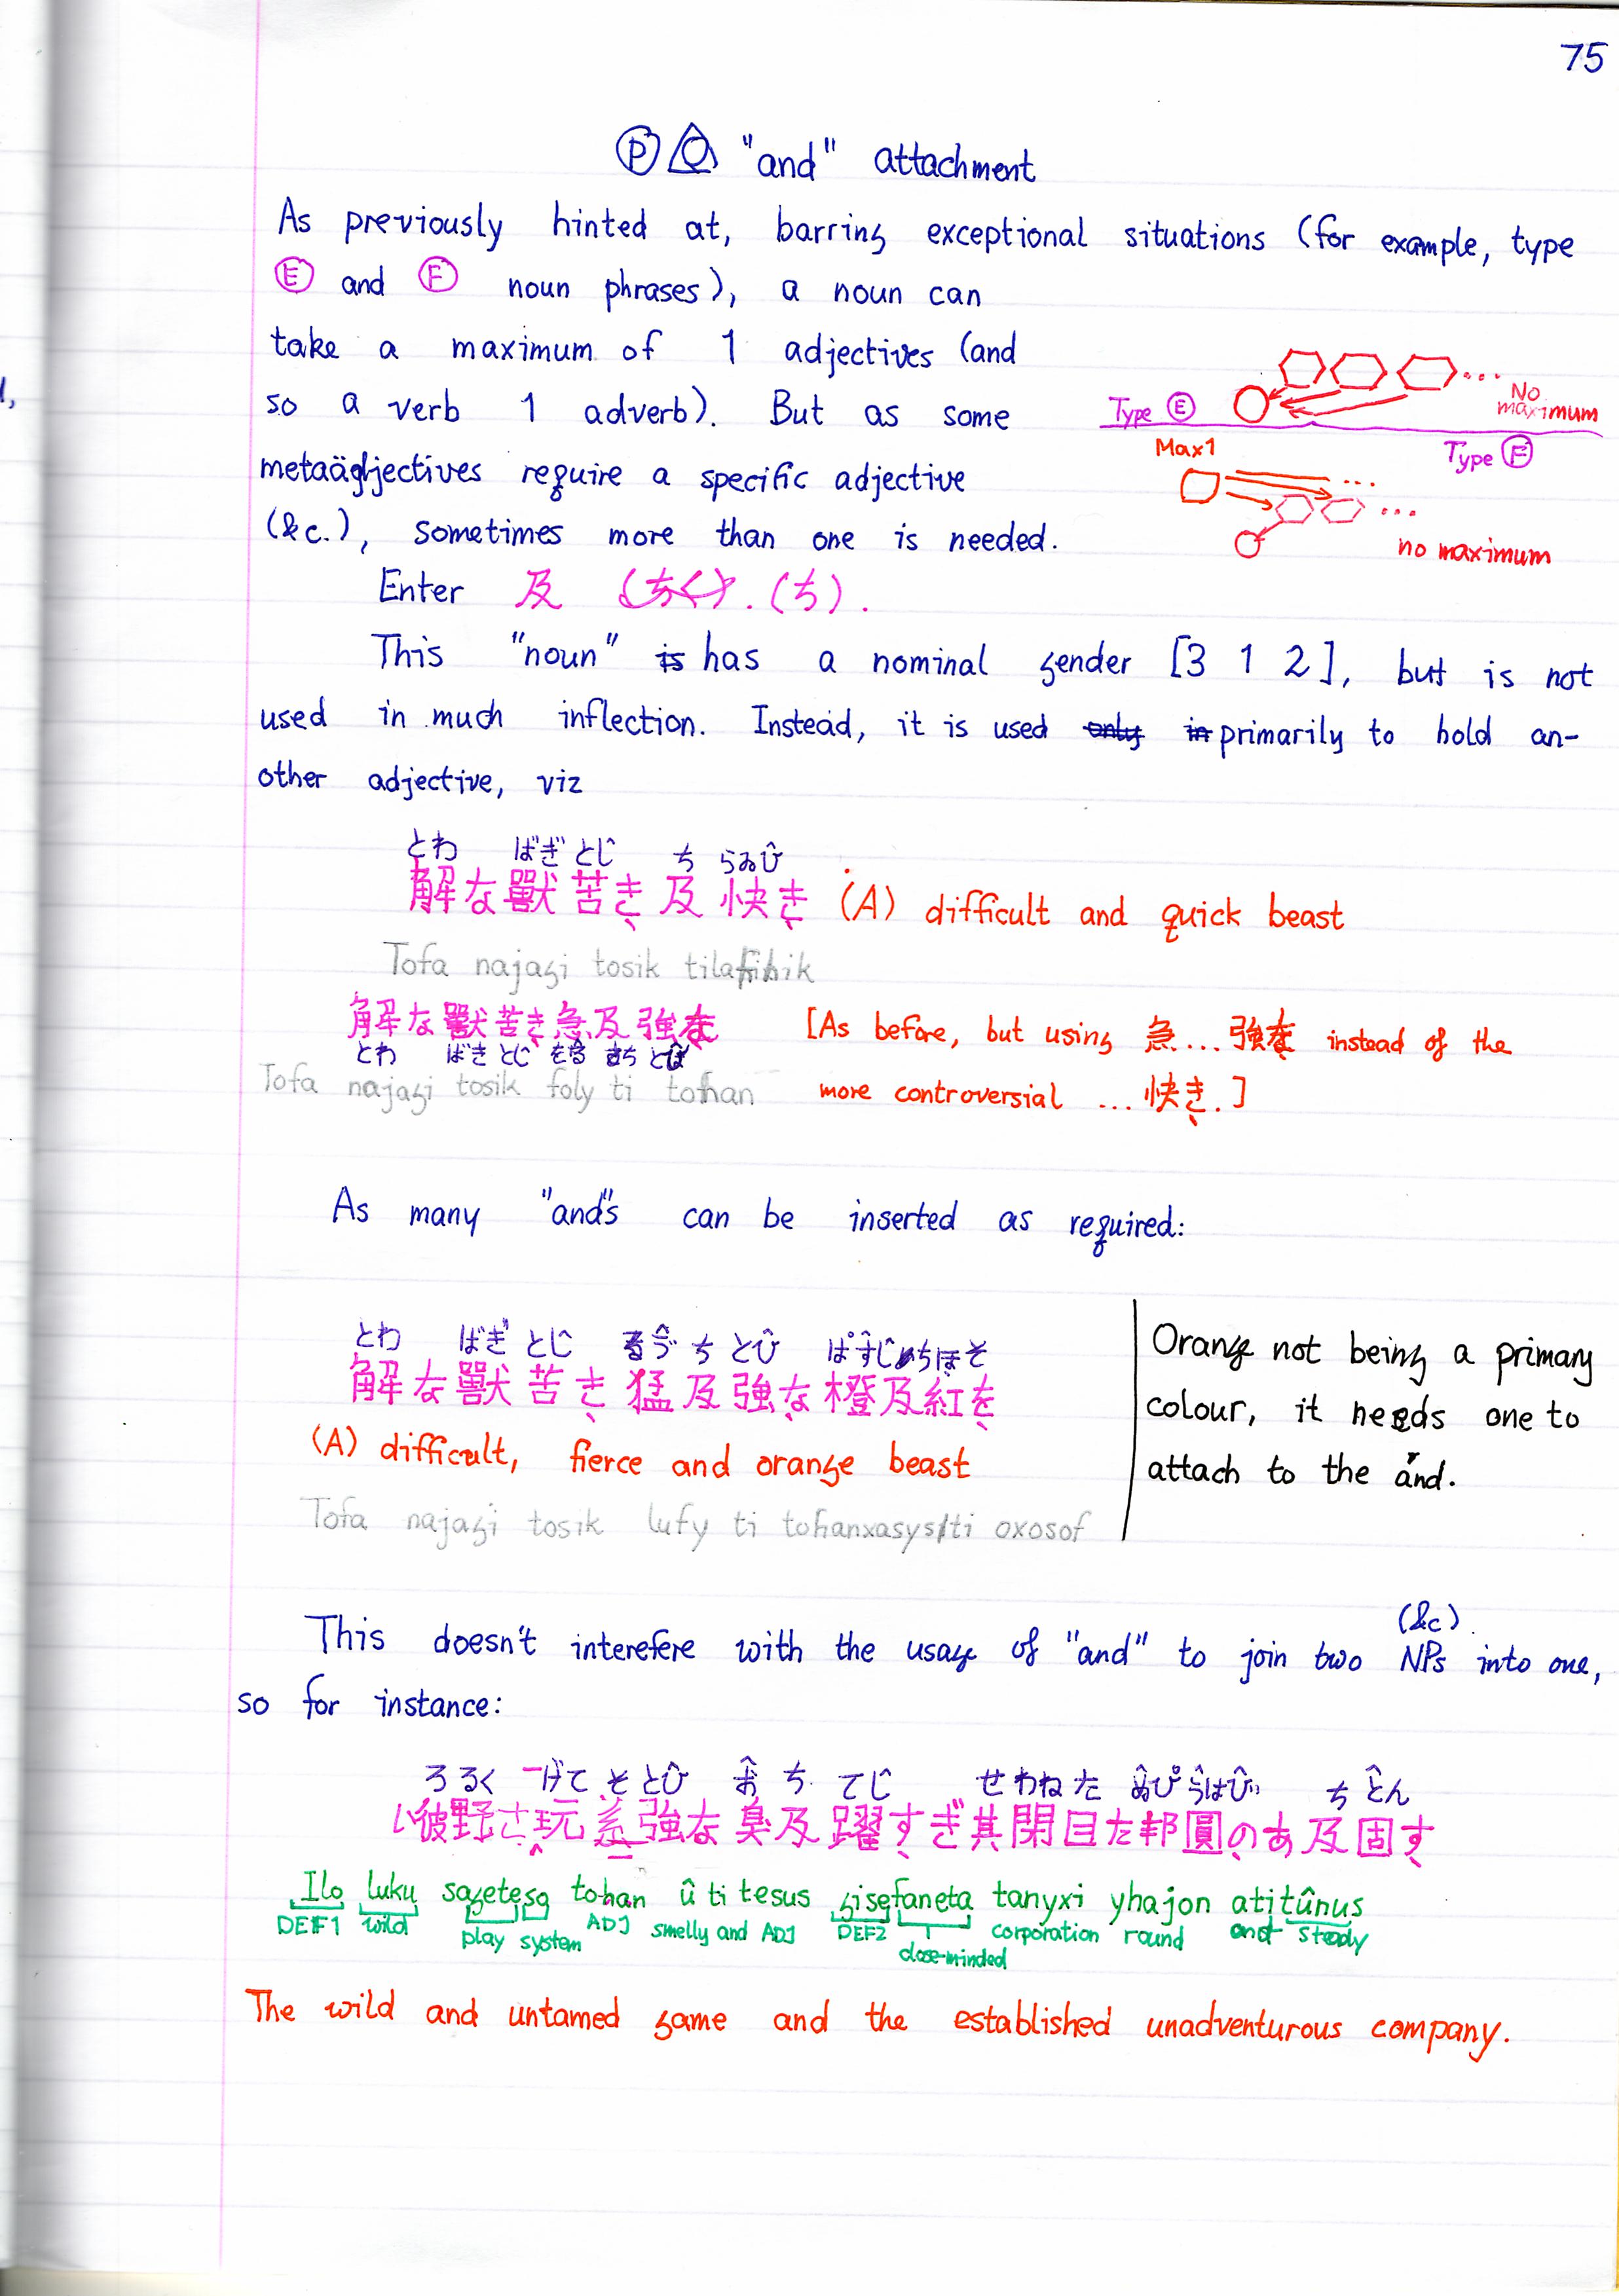 75
Ⓟ "and" attachment
As previously hinted at, barring exceptional situations (for example, type
Ⓔ and Ⓕ noun phrases), a noun can
take a maximum of 1 adjectives (and
so a verb 1 adverb). But as some
metaädjectives require a specific adjective
(&c.), sometimes more than one is needed.
Type Ⓔ
No maximum
Max1
Type Ⓕ
no maximum
Enter 及 (ちく). (ち).
This "noun" is has a nominal gender [3 1 2], but is not
used in much inflection. Instead, it is used only in primarily to hold an-
other adjective, viz
とわ ばぎ とじ ち らゐひ̂
解な獸苦き及快き (A) difficult and quick beast
Tofa najagi tosik
解な獸苦き急及強な [As before, but using 急...強な instead of the
とわ ばぎ とじ
Tofa najagi tosik foly ti tohan more controversial ... 快き.]
As many "and"s can be inserted as required:
とわ ばぎ とじ ち とひ̂
解な獸苦き猛及強な橙及紅を
(A) difficult, fierce and orange beast
Tofa najagi tosik lufy ti tohanxasys/ti oxosof
Orange not being a primary
colour, it needs one to
attach to the and.
This doesn't interefere with the usage of "and" to join two NPs (&c). into one,
so for instance:
ろ るく げて そ とひ̂ ち てじ せ わねた ち とん
彼野さ玩系強な臭及躍すぎ其閉目た邦圓のあ及固す
Ilo luku sagetesg tohan û ti tesus gisefaneta tanyxi yhajon atitûnus
DEF1 wild play system ADJ smelly and ADJ DEF2 close-minded corporation round and steady
The wild and untamed game and the established unadventurous company.